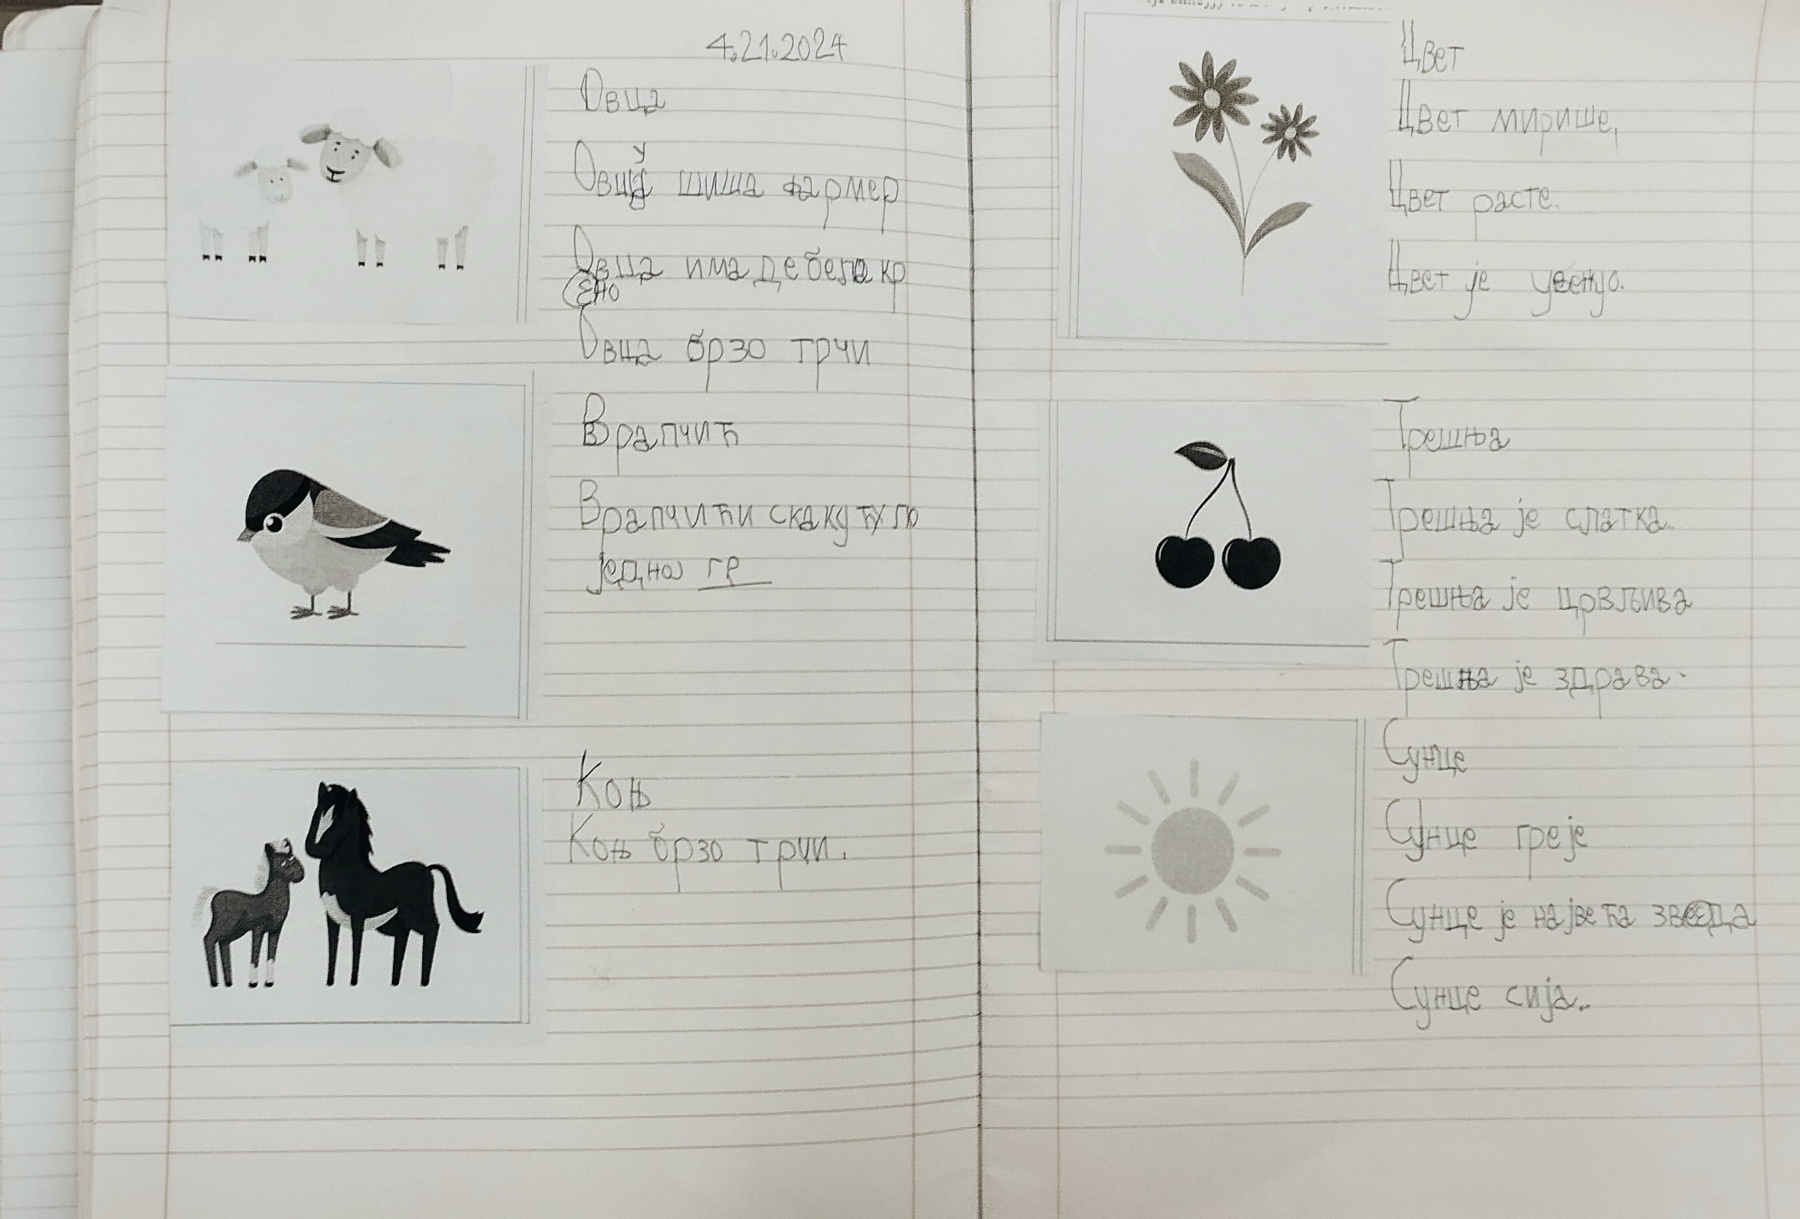 4.21.2024
Овца
Овцу шиша фармер
Овца има дебела кр
зно
Овца брзо трчи
Врапчић
Врапчићи скакућу по
једној гр
Коњ
Коњ брзо трчи.
Цвет
Цвет мирише,
Цвет расте.
Цвет је увенуо.
Трешња
Трешња је слатка.
Трешња је црвљива
Трешња је здрава.
Сунце
Сунце греје
Сунце је највећа звезда
Сунце сија..